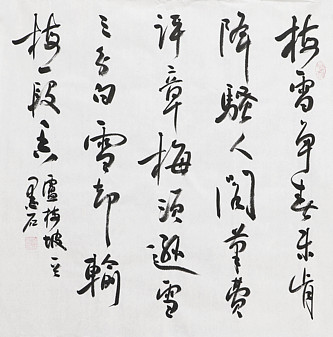 梅雪争春未肯
降骚人阁笔费
评章梅须逊雪
三分白雪却输
梅一段香
卢梅坡 其一
墨石